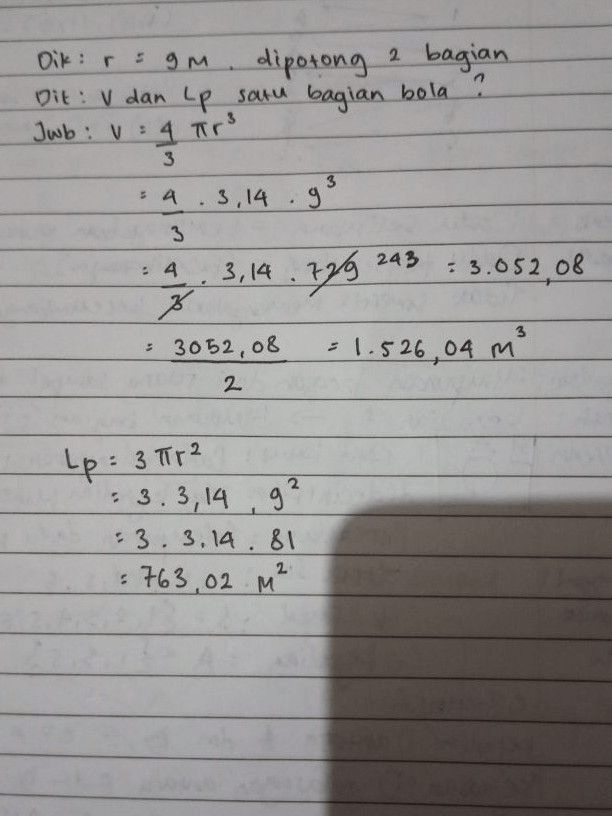 Dik : r = 9 M . dipotong 2 bagian
Dit : V dan Lp satu bagian bola ?
Jwb : V = 4/3 πr³
= 4/3 . 3,14 . 9³
= 4/3 . 3,14 . 729 243 = 3.052,08
= 3052,08/2 = 1.526,04 M³
Lp = 3 πr²
= 3 . 3,14 . 9²
= 3 . 3.14 . 81
= 763,02 M²